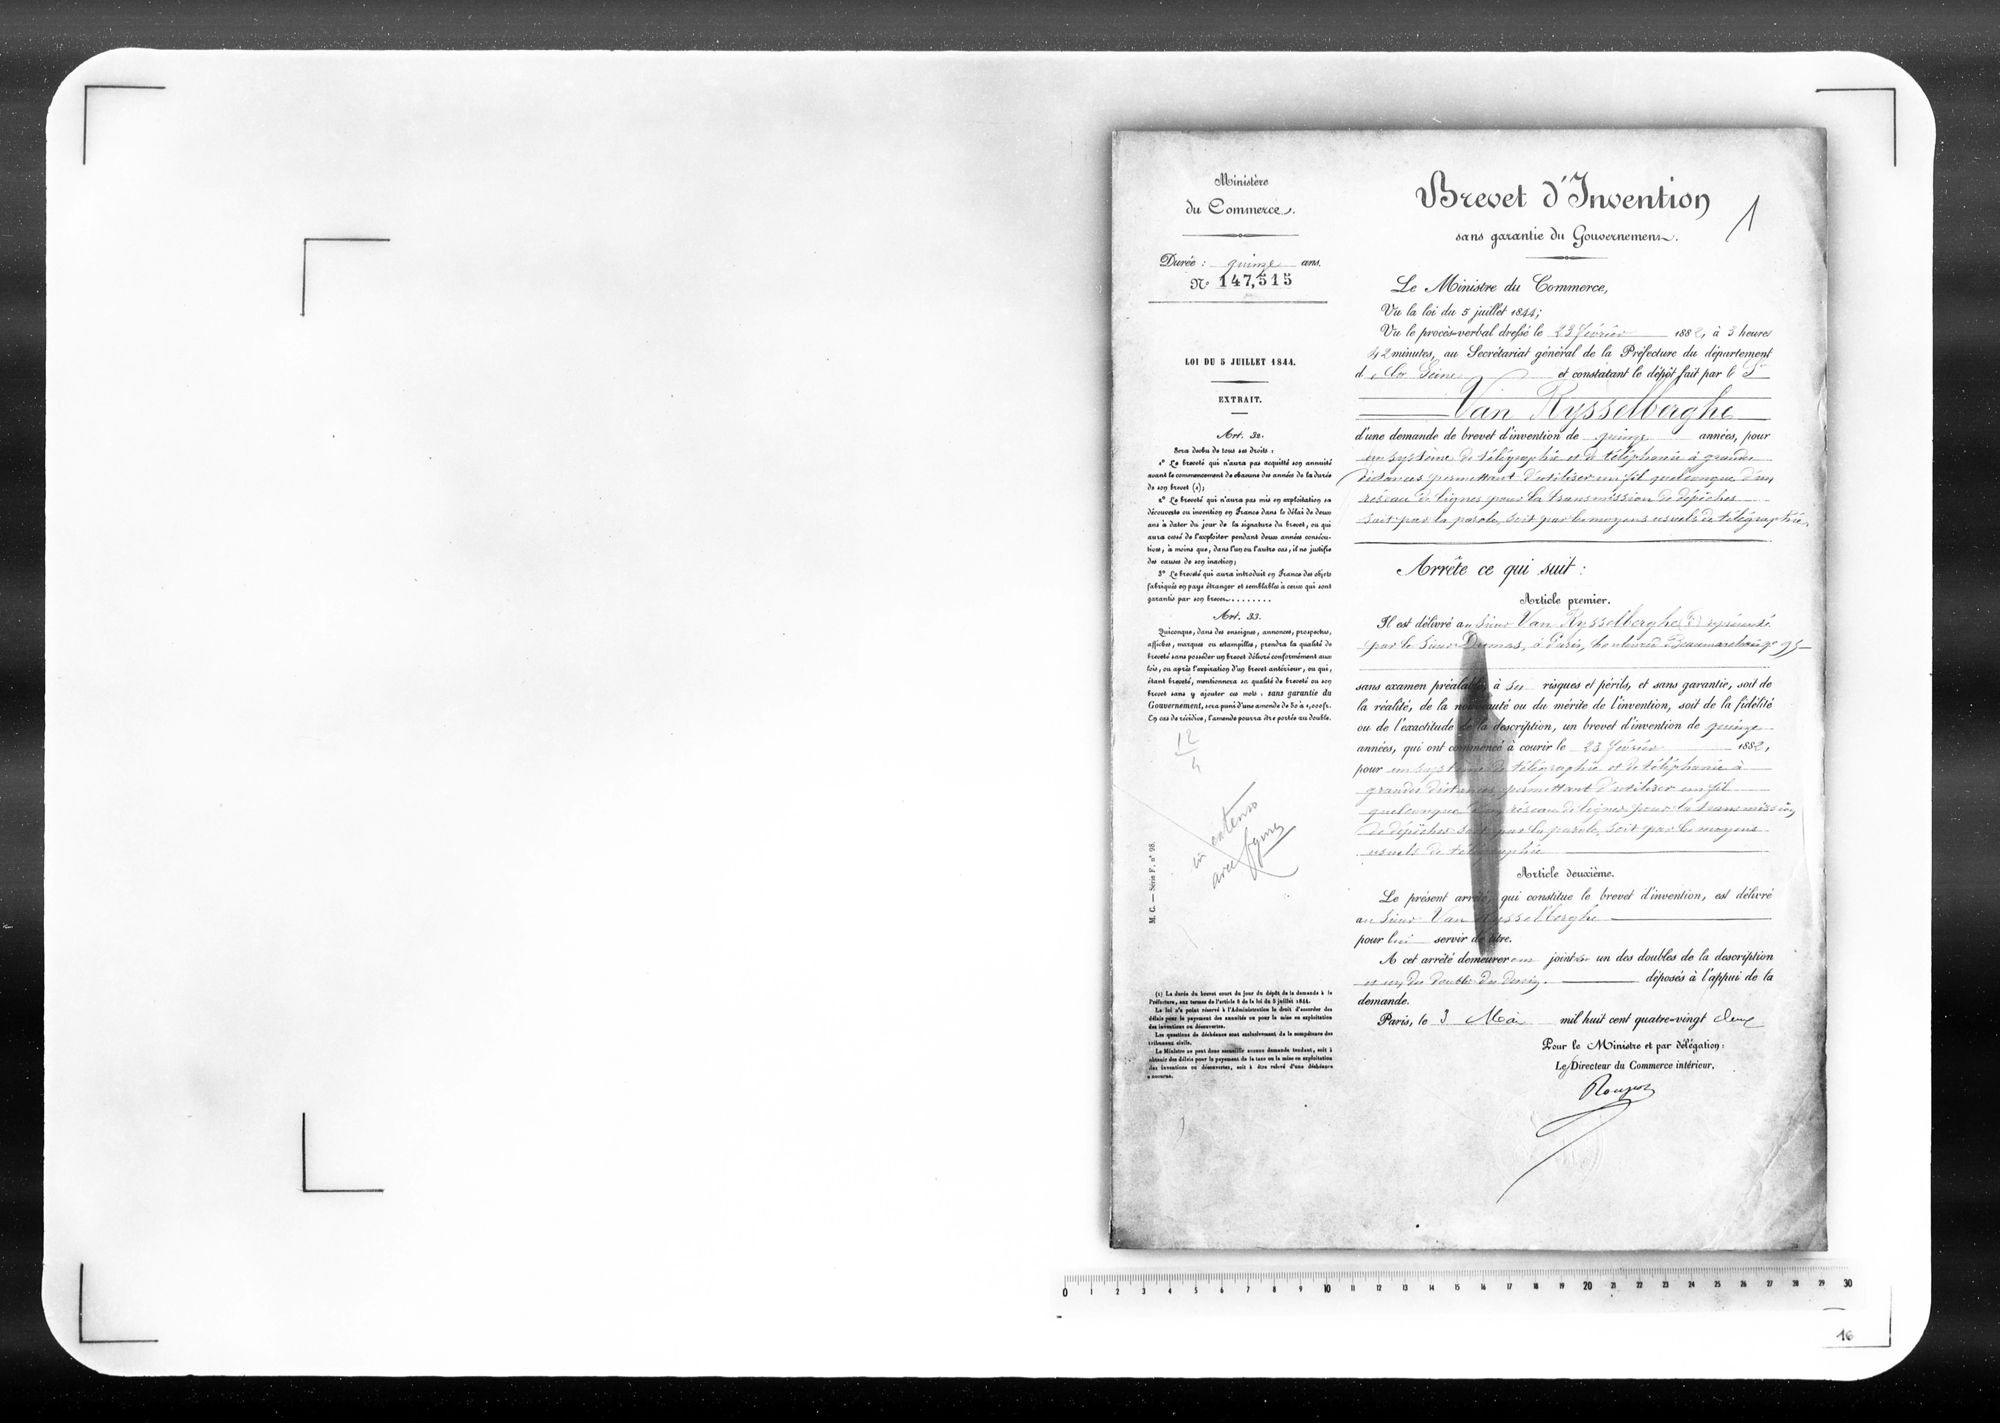 Ministère
du Commerce.
Durée : quinze ans.
N° 147,515
LOI DU 5 JUILLET 1844.
EXTRAIT.
Art. 32.
Sera déchu de tous ses droits :
1° Le breveté qui n'aura pas acquitté son annuité
avant le commencement de chacune des années de la durée
de son brevet (1);
2° Le breveté qui n'aura pas mis en exploitation sa
découverte ou invention en France dans le délai de deux
ans à dater du jour de la signature du brevet, ou qui
aura cessé de l'exploiter pendant deux années consécu-
tives, à moins que, dans l'un ou l'autre cas, il ne justifie
des causes de son inaction;
3° Le breveté qui aura introduit en France des objets
fabriqués en pays étranger et semblables à ceux qui sont
garantis par son brevet........
Art. 33.
Quiconque, dans des enseignes, annonces, prospectus,
affiches, marques ou estampilles, prendra la qualité de
breveté sans posséder un brevet délivré conformément aux
lois, ou après l'expiration d'un brevet antérieur, ou qui,
étant breveté, mentionnera sa qualité de breveté ou son
brevet sans y ajouter ces mots : sans garantie du
Gouvernement, sera puni d'une amende de 50 à 1,000 fr.
En cas de récidive, l'amende pourra être portée au double.
12
4
in extenso
avec figures
M. C. — Série F, n° 98.
(1) La durée du brevet court du jour du dépôt de la demande à la
Préfecture, aux termes de l'article 8 de la loi du 5 juillet 1844.
La loi n'a point réservé à l'Administration le droit d'accorder des
délais pour le payement des annuités ou pour la mise en exploitation
des inventions ou découvertes.
Les questions de déchéance sont exclusivement de la compétence des
tribunaux civils.
Le Ministre ne peut donc accueillir aucune demande tendant, soit à
obtenir des délais pour le payement de la taxe ou la mise en exploitation
des inventions ou découvertes, soit à être relevé d'une déchéance
encourue.
Brevet d'Invention
1
sans garantie du Gouvernement.
Le Ministre du Commerce,
Vu la loi du 5 juillet 1844;
Vu le procès-verbal dressé le 23 février 1882, à 3 heures
42 minutes, au Secrétariat général de la Préfecture du département
d e la Seine et constatant le dépôt fait par le Sr
Van Rysselberghe
d'une demande de brevet d'invention de quinze années, pour
un système de télégraphie et de téléphonie à grandes
distances permettant d'utiliser un fil quelconque d'un
réseau de lignes pour la transmission de dépêches
soit par la parole, soit par les moyens usuels de télégraphie.
Arrête ce qui suit :
Article premier.
Il est délivré au Sieur Van Rysselberghe (F) représenté
par le Sieur Dumas, à Paris, boulevard Beaumarchais n° 95
sans examen préalable, à ses risques et périls, et sans garantie, soit de
la réalité, de la nouveauté ou du mérite de l'invention, soit de la fidélité
ou de l'exactitude de la description, un brevet d'invention de quinze
années, qui ont commencé à courir le 23 février 1882,
pour un système de télégraphie et de téléphonie à
grandes distances permettant d'utiliser un fil
quelconque d'un réseau de lignes pour la transmission
de dépêches soit par la parole, soit par les moyens
usuels de télégraphie
Article deuxième.
Le présent arrêté, qui constitue le brevet d'invention, est délivré
au Sieur Van Rysselberghe
pour lui servir de titre.
A cet arrêté demeurera joint un des doubles de la description
et un des doubles du dessin. déposés à l'appui de la
demande.
Paris, le 3 Mai mil huit cent quatre-vingt deux
Pour le Ministre et par délégation :
Le Directeur du Commerce intérieur,
0 1 2 3 4 5 6 7 8 9 10 11 12 13 14 15 16 17 18 19 20 21 22 23 24 25 26 27 28 29 30
16